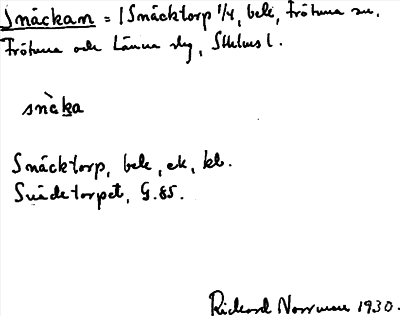 Snäckan = / Snäcktorp 1/4, bel, Frötuna sn.
Frötuna och Länna slg, Sthlms l.
snèka
Snäcktorp, bek, ek, kb.
Smedetorpet, G.85.
Rickard Norrman 1930.